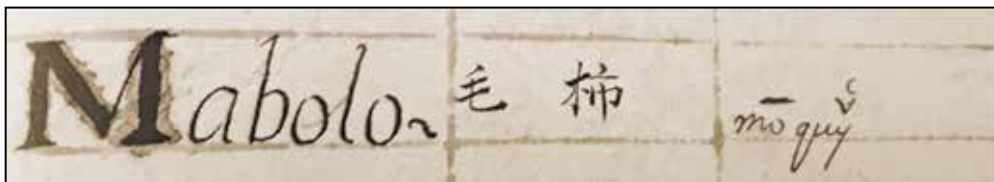 Mabolo~ 毛 柿 mō quỷ